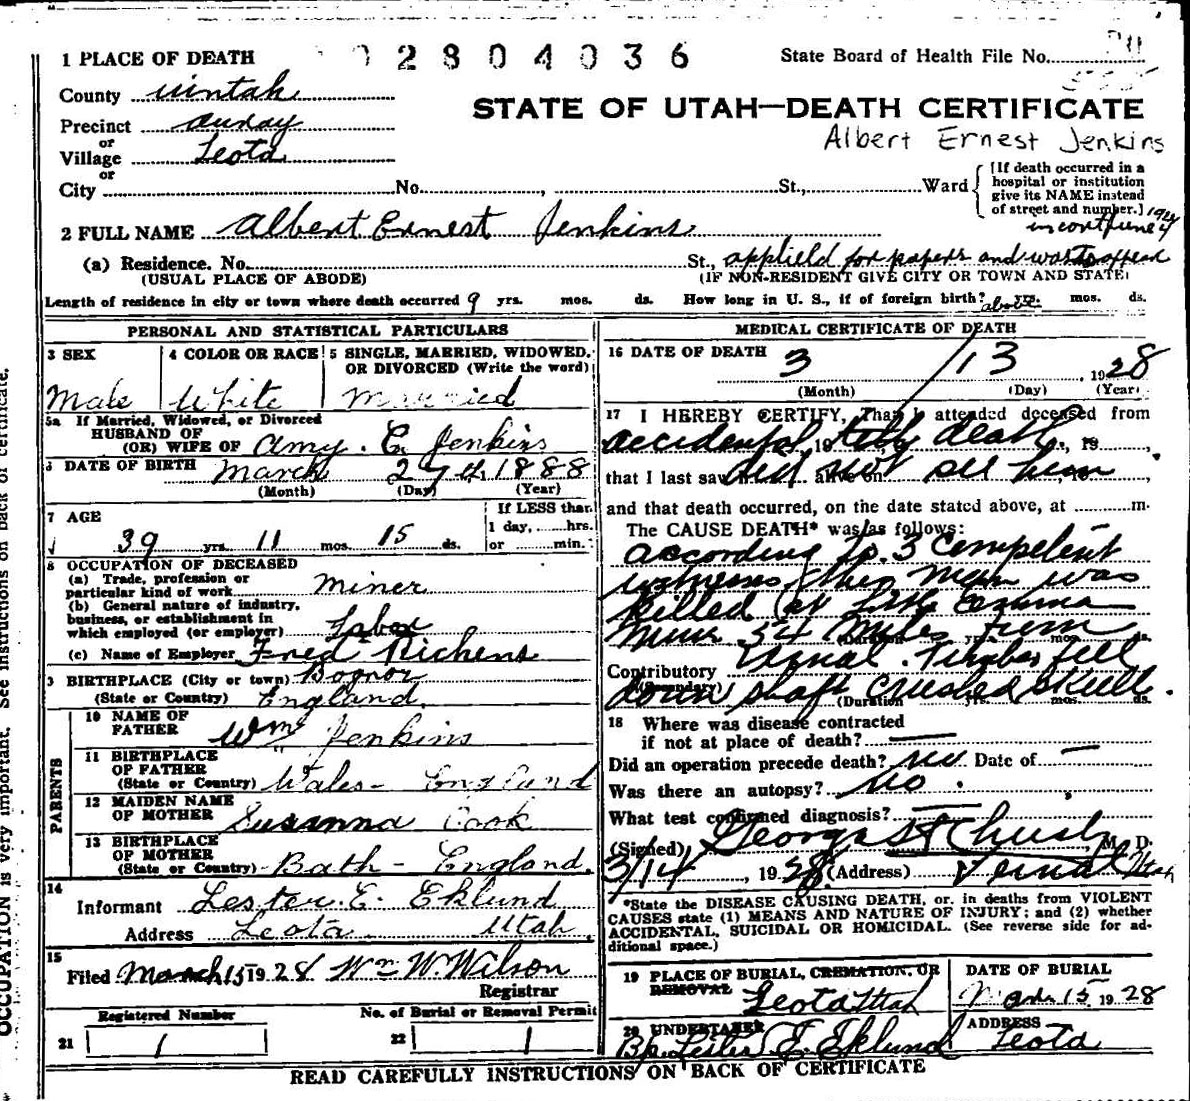 1 PLACE OF DEATH
02804036
State Board of Health File No.
County uintah
STATE OF UTAH—DEATH CERTIFICATE
Precinct ouray
Albert Ernest Jenkins
or
Village Leota
or
City No. , St., Ward
[If death occurred in a hospital or institution give its NAME instead of street and number.]
2 FULL NAME Albert Ernest Jenkins
1924
(a) Residence. No. St., applield for papers and
(USUAL PLACE OF ABODE) (IF NON-RESIDENT GIVE CITY OR TOWN AND STATE)
Length of residence in city or town where death occurred 9 yrs. mos. ds. How long in U. S., if of foreign birth? above yrs. mos. ds.
PERSONAL AND STATISTICAL PARTICULARS
3 SEX 4 COLOR OR RACE 5 SINGLE, MARRIED, WIDOWED, OR DIVORCED (Write the word)
Male White Married
5a If Married, Widowed, or Divorced
HUSBAND OF
(OR) WIFE OF Amy. E Jenkins
6 DATE OF BIRTH March 27th, 1888
(Month) (Day) (Year)
7 AGE If LESS than
39 yrs. 11 mos. 15 ds. 1 day, hrs. or min.
8 OCCUPATION OF DECEASED
(a) Trade, profession or
particular kind of work miner
(b) General nature of industry,
business, or establishment in
which employed (or employer) Labor
(c) Name of Employer Fred Richens
9 BIRTHPLACE (City or town) Bognor
(State or Country) England.
PARENTS
10 NAME OF
FATHER Wm Jenkins
11 BIRTHPLACE
OF FATHER
(State or Country) Wales - England
12 MAIDEN NAME
OF MOTHER Susanna Cook
13 BIRTHPLACE
OF MOTHER
(State or Country) Bath - England.
14
Informant Lester E. Eklund
Address Leota Utah
15
Filed March 15 1928 Wm W. Wilson
Registrar
Registered Number No. of Burial or Removal Permit
21 1 22 1
MEDICAL CERTIFICATE OF DEATH
16 DATE OF DEATH 3/13, 1928
(Month) (Day) (Year)
17 I HEREBY CERTIFY, That I attended deceased from
accidental death, 19
that I last saw alive on did not see him
and that death occurred, on the date stated above, at m.
The CAUSE DEATH* was as follows:
according to 3 Competent
witnesses, then man was
killed at Little Emma
Mine 54 Miles from
Contributory Vernal. Timber fell
down shaft crushed skull.
(Duration yrs. mos. ds.
18 Where was disease contracted
if not at place of death? —
Did an operation precede death? no Date of —
Was there an autopsy? No.
What test confirmed diagnosis? —
(Signed) George, M. D.
3/14, 1928 (Address) Vernal Utah
*State the DISEASE CAUSING DEATH, or, in deaths from VIOLENT
CAUSES state (1) MEANS AND NATURE OF INJURY; and (2) whether
ACCIDENTAL, SUICIDAL OR HOMICIDAL. (See reverse side for ad-
ditional space.)
19 PLACE OF BURIAL, CREMATION, OR REMOVAL DATE OF BURIAL
Leota Utah Mar 15 1928
20 UNDERTAKER ADDRESS
Lester E. Eklund Leota
READ CAREFULLY INSTRUCTIONS ON BACK OF CERTIFICATE
OCCUPATION is very important. See instructions on back of certificate.